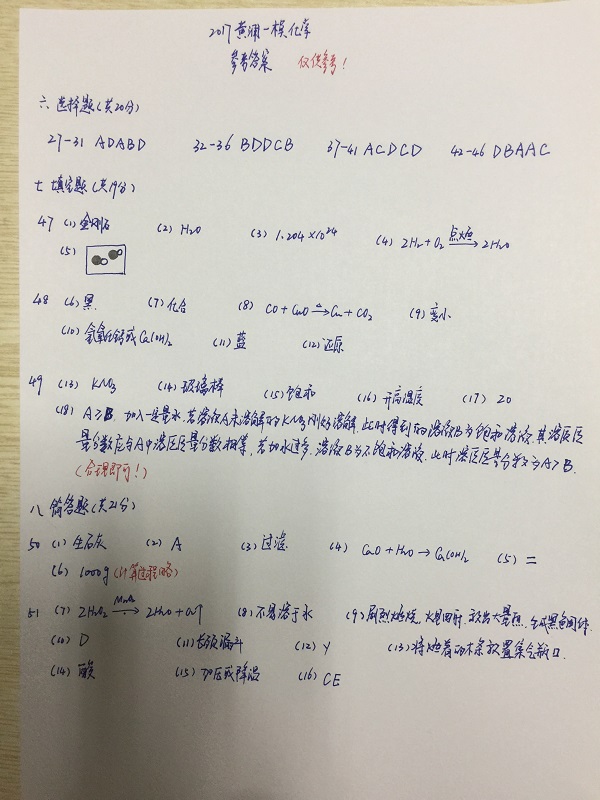 2017黄浦一模化学
参考答案 仅供参考!
六、选择题(共20分)
27-31 ADABD 32-36 BDDCB 37-41 ACDCD 42-46 DBAAC
七 填空题(共19分)
47 (1) 金刚石 (2) H₂O (3) 1.204×10²⁴ (4) 2H₂+O₂ 点燃→ 2H₂O
(5)
48 (6) 黑 (7) 化合 (8) CO+CuO △→ Cu+CO₂ (9) 变小
(10) 氢氧化钙或Ca(OH)₂ (11) 蓝 (12) 还原
49 (13) KNO₃ (14) 玻璃棒 (15) 饱和 (16) 升高温度 (17) 20
(18) A≥B. 加入一定量水,若溶液A未溶解的KNO₃刚好溶解,此时得到的溶液B为饱和溶液,其溶质质
量分数应与A中溶质质量分数相等,若加水过多,溶液B为不饱和溶液,此时溶质质量分数为A>B.
(合理即可!)
八 简答题(共21分)
50 (1) 生石灰 (2) A (3) 过滤 (4) CaO+H₂O→Ca(OH)₂ (5) 二
(6) 1000g (计算过程略)
51 (7) 2H₂O₂ MnO₂→ 2H₂O+O₂↑ (8) 不易溶于水 (9) 剧烈燃烧,火星四射,放出大量热,生成黑色固体.
(10) D (11) 长颈漏斗 (12) Y (13) 将燃着的木条放置集气瓶口.
(14) 酸 (15) 加压或降温 (16) CE